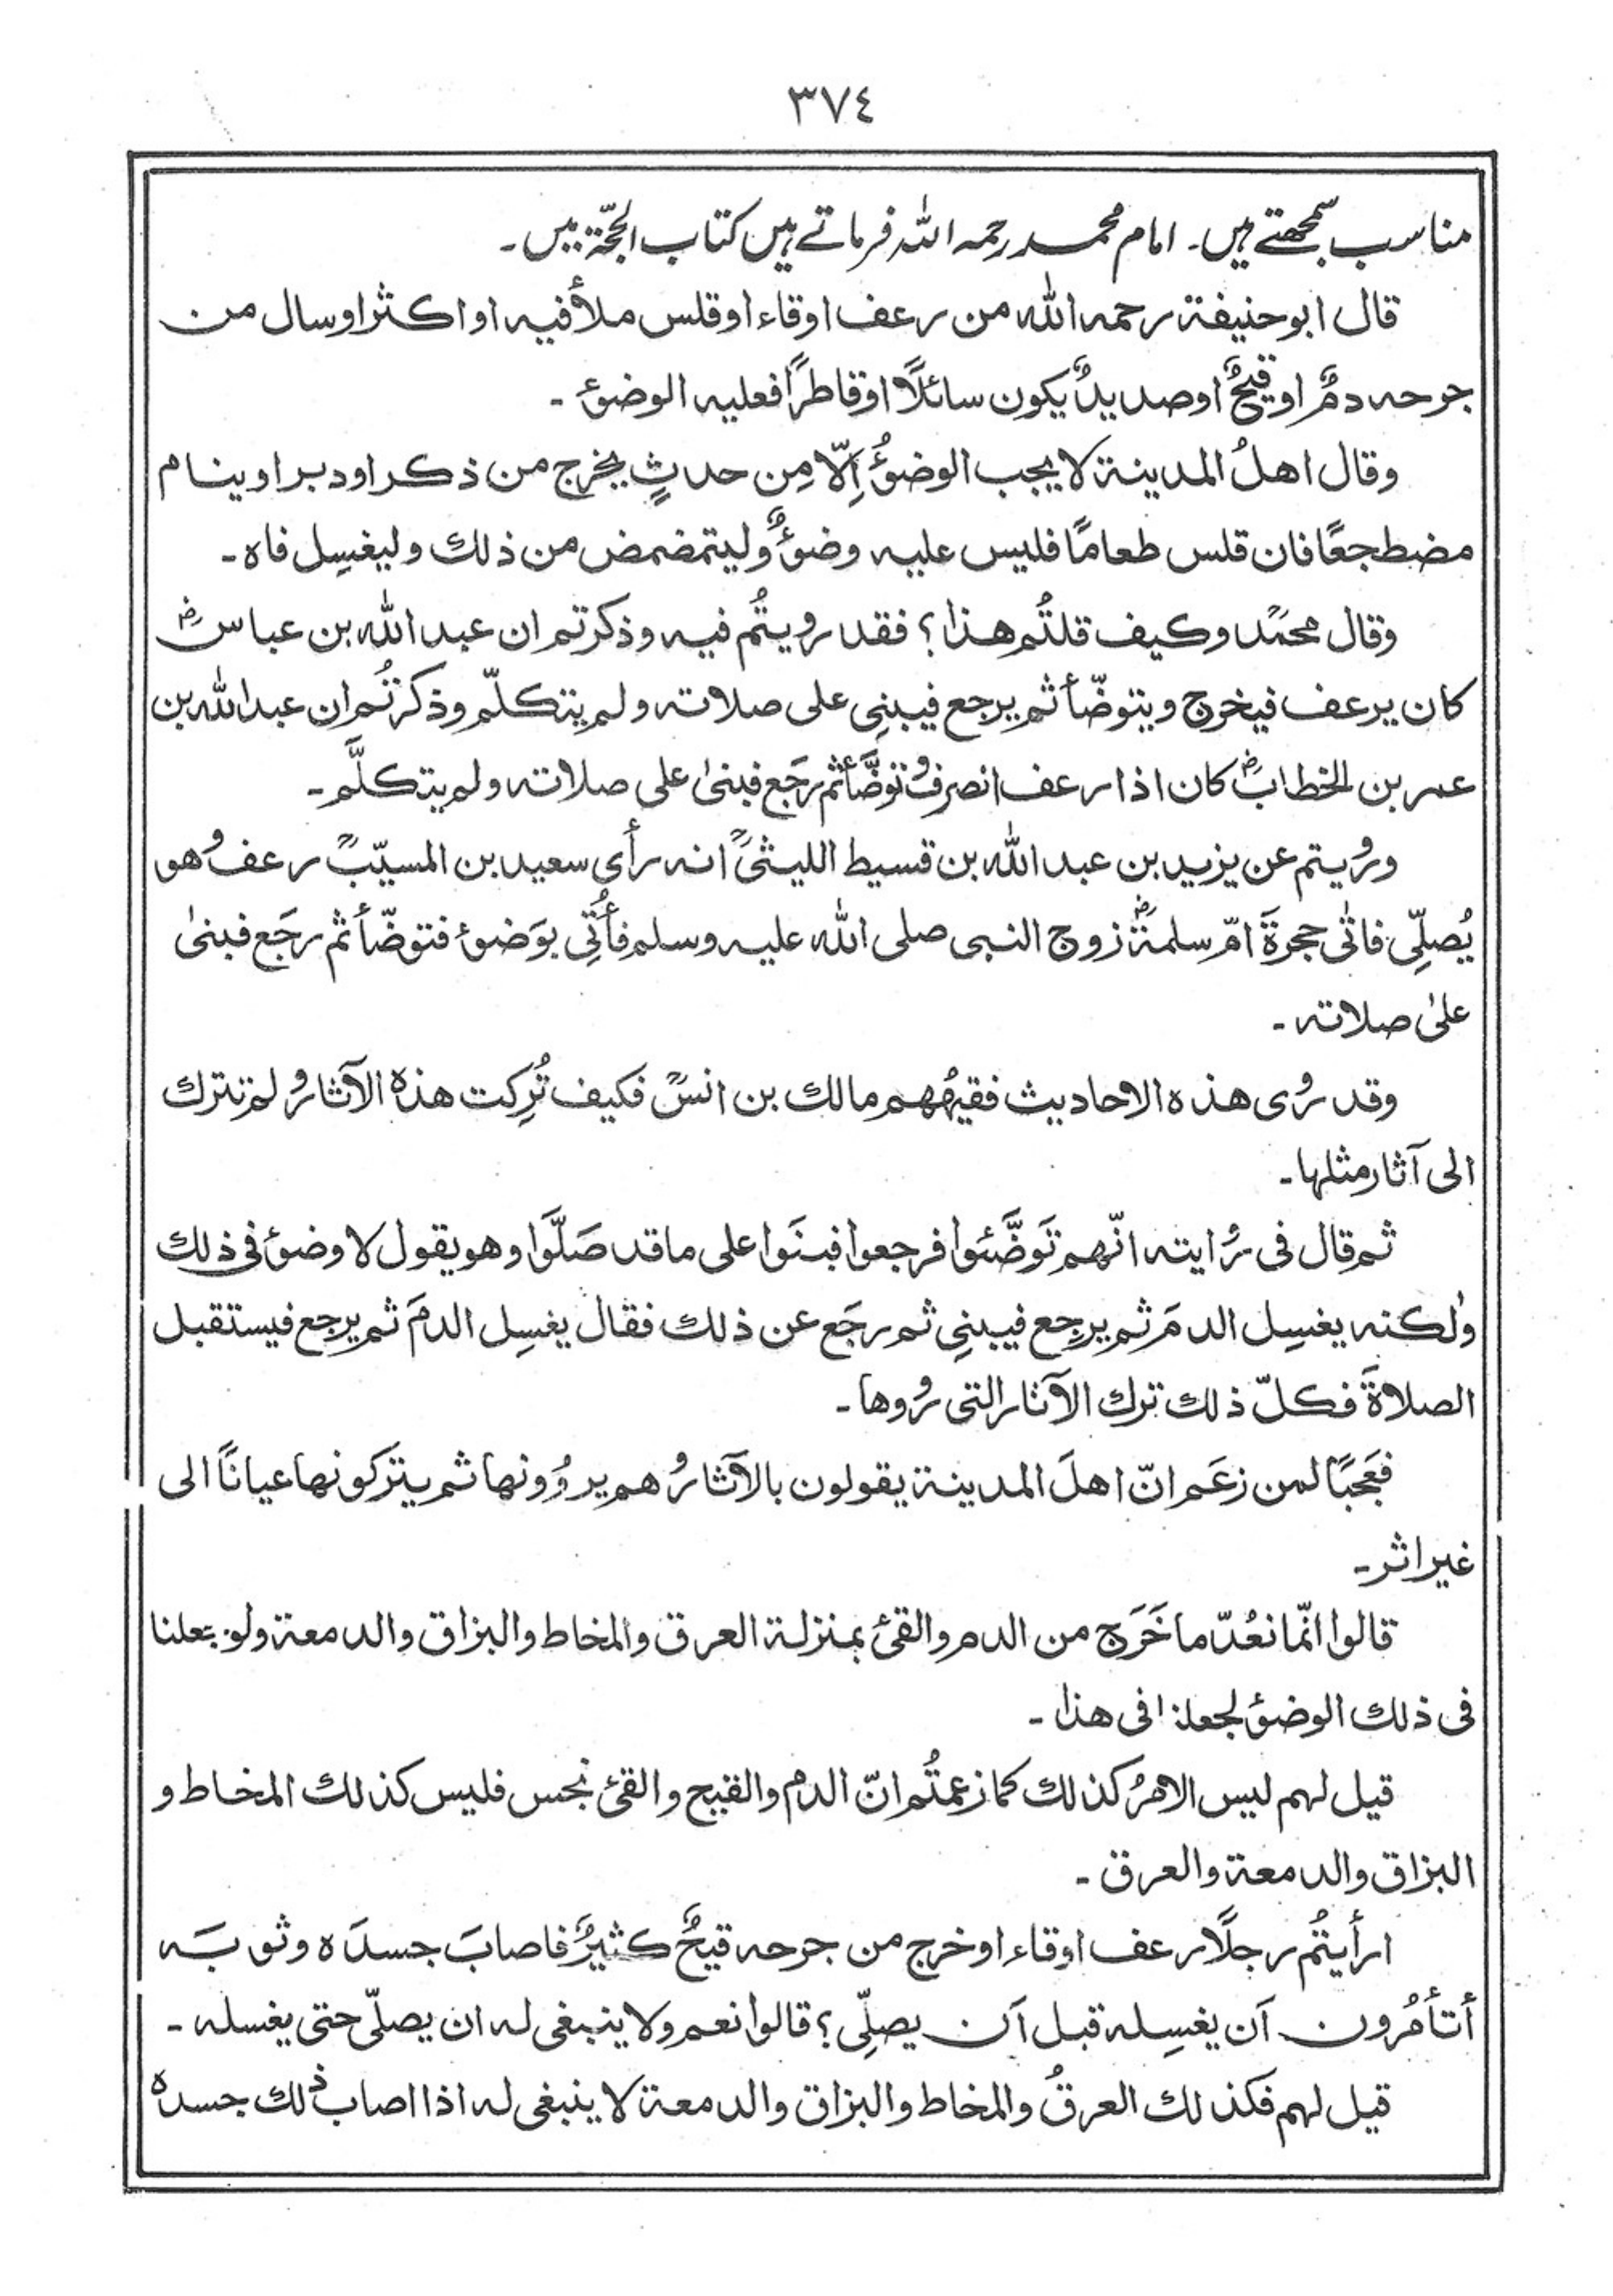 ٣٧٤
مناسب سمجھتے ہیں۔ امام محمد رحمہ اللہ فرماتے ہیں کتاب الحجّۃ میں۔
قال ابو حنیفة رحمه الله من رعف او قاء او قلس ملأ فیه او اکثر او سال من
جرحه دمٌ او قیحٌ او صدیدٌ یکون سائلًا او قاطرًا فعلیه الوضوٴ۔
وقال اهلُ المدینة لا یجب الوضوٴُ اِلّا مِن حدثٍ یخرج من ذکر او دبر او ینام
مضطجعًا فان قلس طعامًا فلیس علیه وضوٴٌ ولیتمضمض من ذلك ولیغسِل فاه۔
وقال محمدؒ وکیف قلتُم هذا؟ فقد رویتُم فیه وذکرتم ان عبد الله بن عباسؓ
کان یرعف فیخرج ویتوضّأ ثم یرجع فیبنِی علی صلاته ولم یتکلّم وذکرتُم ان عبد الله بن
عمر بن الخطابؓ کان اذا رعف انصرف وتوضَّأ ثم رجَع فبنیٰ علی صلاته ولم یتکلَّم۔
ورویتم عن یزید بن عبد الله بن قسیط اللیثیؒ انه رأی سعید بن المسیّبؒ رعف وهو
یُصلِّی فاتٰی حجرةَ امّ سلمةؓ زوج النبی صلی الله علیه وسلم فأُتِی بوَضوٴ فتوضّأ ثم رجَع فبنیٰ
علیٰ صلاته۔
وقد روٰی هذه الاحادیث فقیهُهم مالك بن انسؒ فکیف تُرِکت هذه الآثار ولم تترك
الی آثار مثلها۔
ثم قال فی روایته انّهم تَوضَّئوا فرجعوا فبنَوا علی ما قد صَلَّوا وهو یقول لا وضوٴ فی ذلك
ولٰکنه یغسِل الدمَ ثم یرجِع فیبنِی ثم رجَع عن ذلك فقال یغسِل الدمَ ثم یرجع فیستقبل
الصلاةَ فکلّ ذلك ترك الآثار التی رووها۔
فعَجَبًا لمن زعَم انّ اهلَ المدینة یقولون بالآثار وهم یروُونها ثم یترکونها عیانًا الی
غیر اثر۔
قالوا انّما نعُدّ ما خَرَج من الدم والقئ بمنزلة العرق والمخاط والبزاق والدمعة ولو جعلنا
فی ذلك الوضوٴ لجعلنا فی هذا۔
قیل لهم لیس الامرُ کذلك کما زعمتُم انّ الدم والقیح والقئ نجس فلیس کذلك المخاط و
البزاق والدمعة والعرق۔
ارأیتُم رجلًا رعف او قاء او خرج من جرحه قیحٌ کثیرٌ فاصابَ جسدَه وثوبَه
أتأمُرون أن یغسِله قبل أن یصلِّی؟ قالوا نعم ولا ینبغی له ان یصلّی حتی یغسله۔
قیل لهم فکذلك العرقُ والمخاط والبزاق والدمعة لا ینبغی له اذا اصاب ذلك جسده